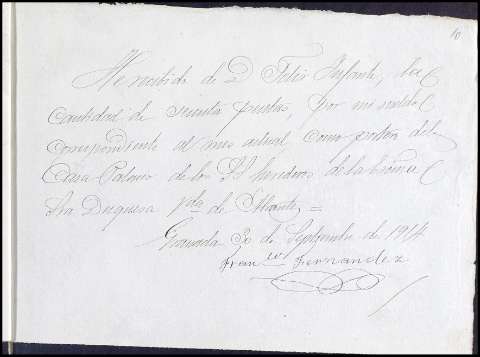 10
He recibido de D. Felix Infante, la
cantidad de sesenta pesetas, por mi sueldo
correspondiente al mes actual como portera de la
Casa Palacio de los SS herederos de la Exma
Sra Duquesa vda de
Granada 30 de Septiembre de 1914
Franco Fernandez